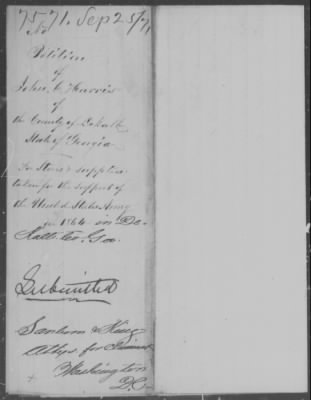 7571. Sep 25/71
No
Petition
of
John C Harris
of
the County of DeKalb
State of Georgia
For Stores & supplies
taken for the support of
the United States Army
in 1864 in De
Kalb Co. Ga.
Submitted
Sanborn & King
Attys for
Washington
D.C.